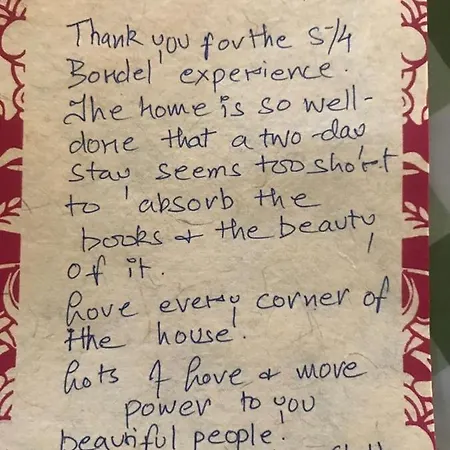 Thank you for the S-74
Bordel experience.
The home is so well-
done that a two-day
stay seems too short
to absorb the
books & the beauty
of it.
Love every corner of
the house!
Lots of Love & more
power to you
beautiful people!